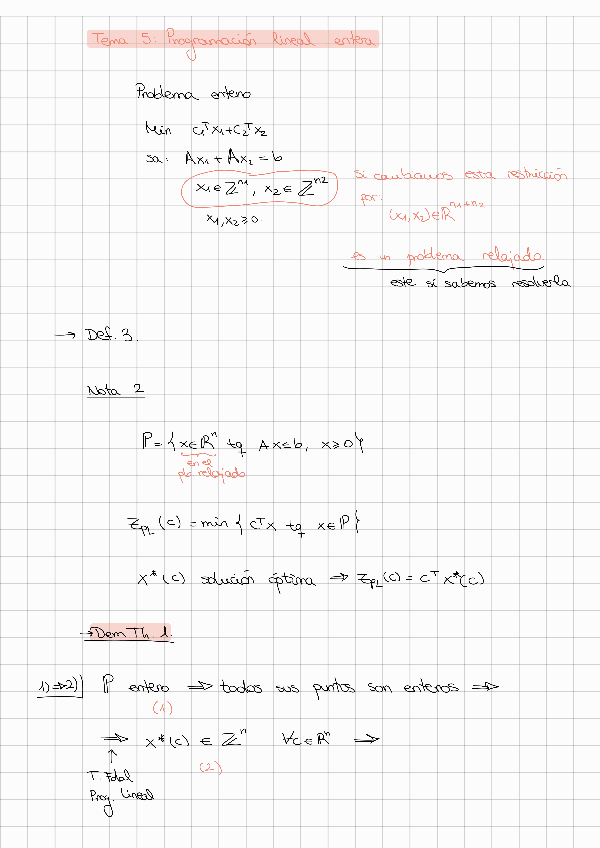 Tema 5: Programación lineal entera
Problema entero
Min c₁ᵀx₁+c₂ᵀx₂
sa: Ax₁ + Ax₂ = b
x₁ ∈ ℤⁿ¹, x₂ ∈ ℤⁿ²
si cambiamos esta restricción
por:
(x₁,x₂)∈ℝⁿ¹⁺ⁿ²
x₁,x₂ ≥ 0
es un problema relajado
este sí sabemos resolverlo
→ Def. 3.
Nota 2
ℙ = { x∈ℝⁿ tq Ax≤b, x≥0 }
en el
pb. relajado
Z_PL (c) = min { cᵀx tq x∈ℙ }
x*(c) solución óptima ⇒ Z_PL(c) = cᵀ x*(c)
→ Dem Th 1.
1)⇒2)] ℙ entero ⇒ todos sus puntos son enteros ⇒
(1)
⇒ x*(c) ∈ ℤⁿ ∀c∈ℝⁿ ⇒
↑ (2)
T Fdal
Prog. Lineal